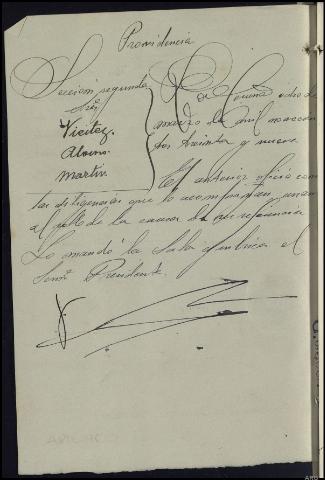 Providencia
Sección segunda
Sres
Vieitez
Alonso
Martin
La Coruña ocho de
marzo de mil novecien
tos treinta y nueve
El anterior oficio con
las diligencias que lo acompañan, unan
al rollo de la causa de su referencia
Lo mandó la Sala y rubrica el
Señor Presidente.